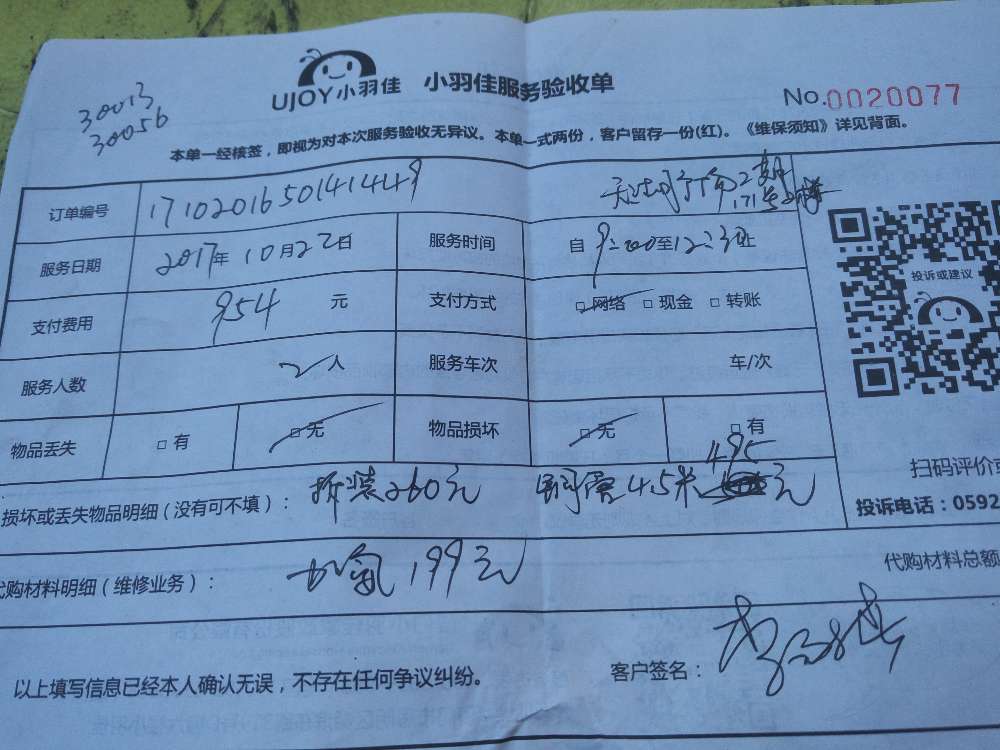 30013
30056
UJOY小羽佳 小羽佳服务验收单
No.0020077
本单一经核签，即视为对本次服务验收无异议。本单一式两份，客户留存一份(红)。《维保须知》详见背面。
订单编号 17102016501414449
服务日期 2017年10月22日 服务时间 自9:00至12:30止
投诉或建议
支付费用 954 元 支付方式 □网络 □现金 □转账
服务人数 2人 服务车次 车/次
物品丢失 □有 □无 物品损坏 □无 □有
扫码评价或
损坏或丢失物品明细（没有可不填）： 拆装260元 铜管4.5米 495元
投诉电话：0592
代购材料明细（维修业务）： 加氟199元 代购材料总额
以上填写信息已经本人确认无误，不存在任何争议纠纷。 客户签名：